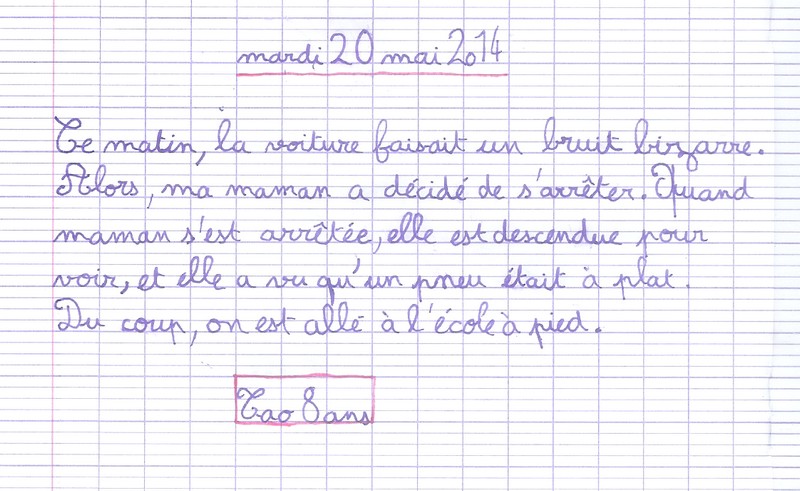 mardi 20 mai 2014
Ce matin, la voiture faisait un bruit bizarre.
Alors, ma maman a décidé de s'arrêter. Quand
maman s'est arrêtée, elle est descendue pour
voir, et elle a vu qu'un pneu était à plat.
Du coup, on est allé à l'école à pied.
Tao 8 ans